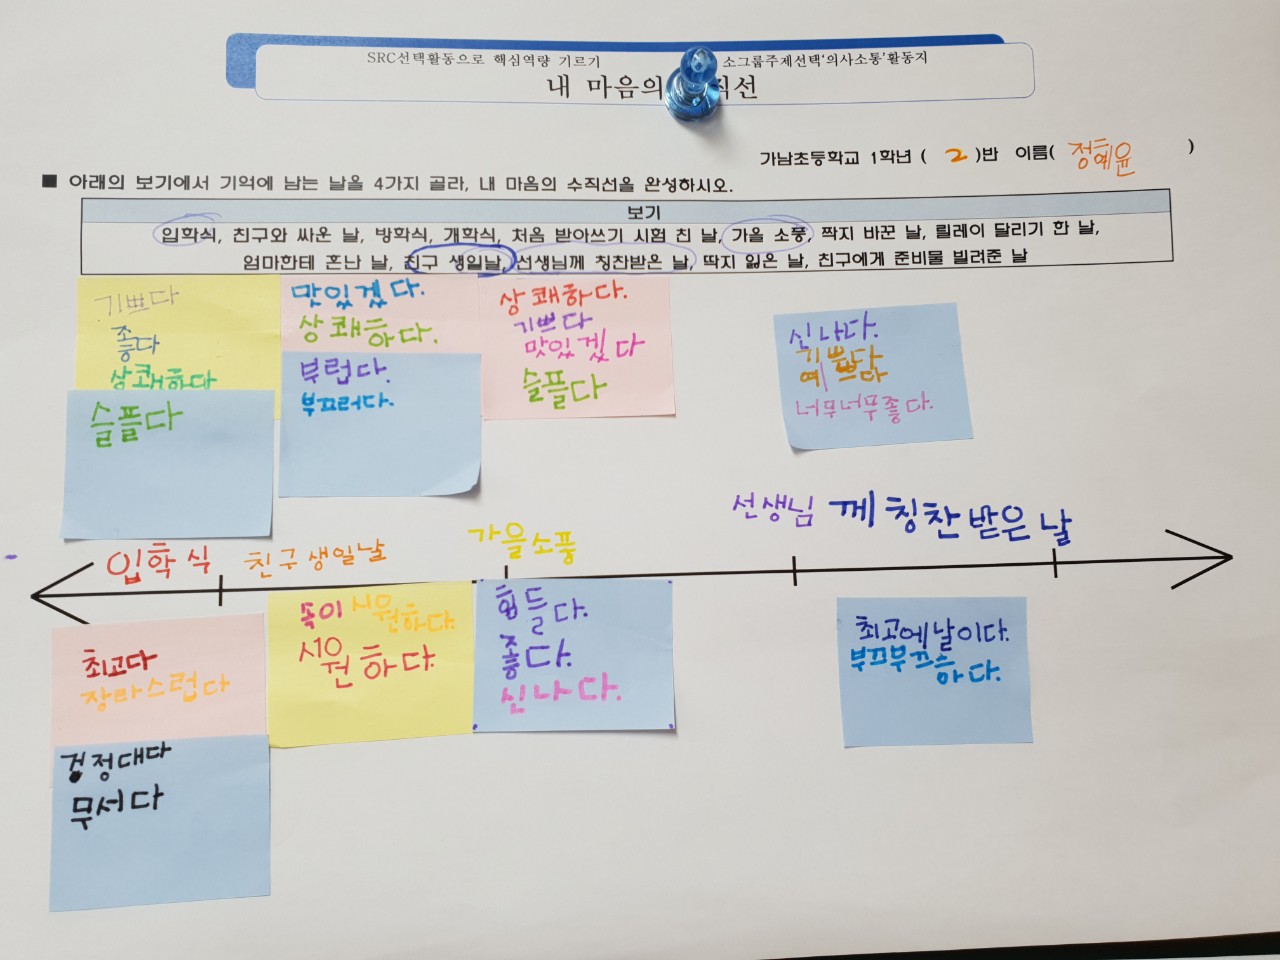 SRC선택활동으로 핵심역량 기르기
소그룹주제선택'의사소통'활동지
내 마음의 직선
가남초등학교 1학년 ( 2 )반 이름( 정혜윤 )
■ 아래의 보기에서 기억에 남는 날을 4가지 골라, 내 마음의 수직선을 완성하시오.
보기
입학식, 친구와 싸운 날, 방학식, 개학식, 처음 받아쓰기 시험 친 날, 가을 소풍, 짝지 바꾼 날, 릴레이 달리기 한 날,
엄마한테 혼난 날, 친구 생일날, 선생님께 칭찬받은 날, 딱지 잃은 날, 친구에게 준비물 빌려준 날
기쁘다
좋다
상쾌하다
슬플다
맛있겠다.
상쾌하다.
부럽다.
부끄러다.
상쾌하다.
기쁘다
맛있겠다
슬플다
신나다.
기쁘다
예쁘다
너무너무좋다.
입학식
친구생일날
가을소풍
선생님께칭찬받은날
최고다
장라스럽다
겅정대다
무서다
속이 시원하다.
시원하다.
힘들다.
좋다.
신나다.
최고에날이다.
부끄부끄승
하다.